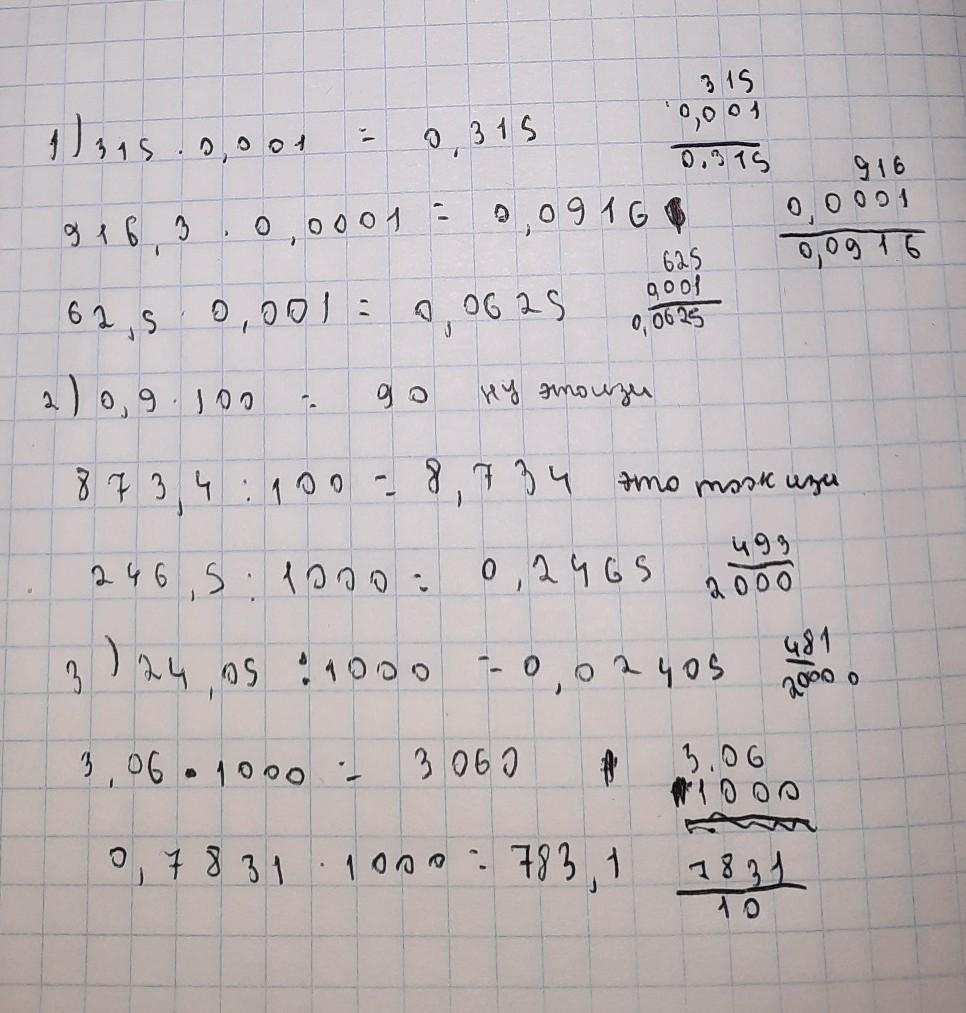 1) 315 · 0,001 = 0,315
315
0,001
0.315
916,3 · 0,0001 = 0,0916
916
0,0001
0,0916
62,5 · 0,001 = 0,0625
625
0,001
0,0625
2) 0,9 · 100 = 90 ну это изи
873,4 : 100 = 8,734 это тож изи
246,5 : 1000 = 0,2465
493
2000
3) 24,05 : 1000 = 0,02405
481
20000
3,06 · 1000 = 3060
3.06
1000
0,7831 · 1000 = 783,1
7831
10